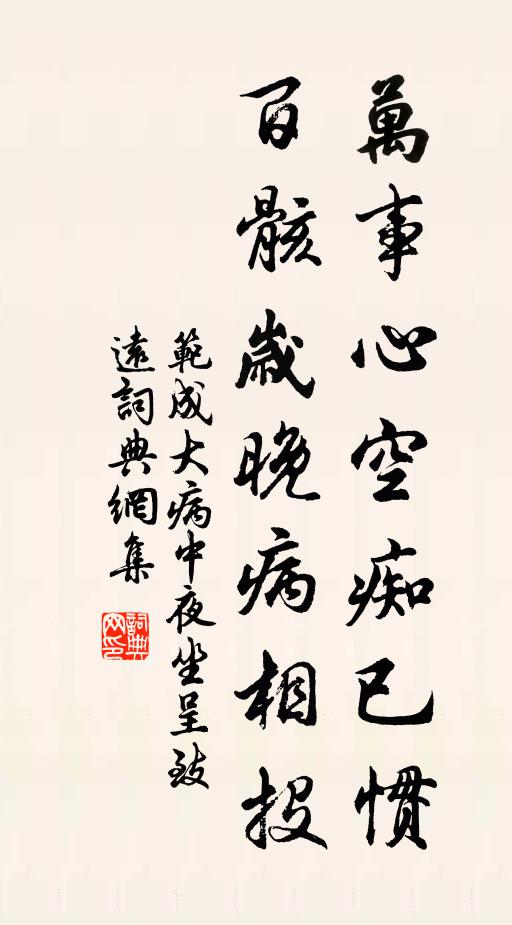 萬事心空痴已慣
百骸歲晚病相投
範成大病中夜坐呈致
遠詞典網集
詞典
网印